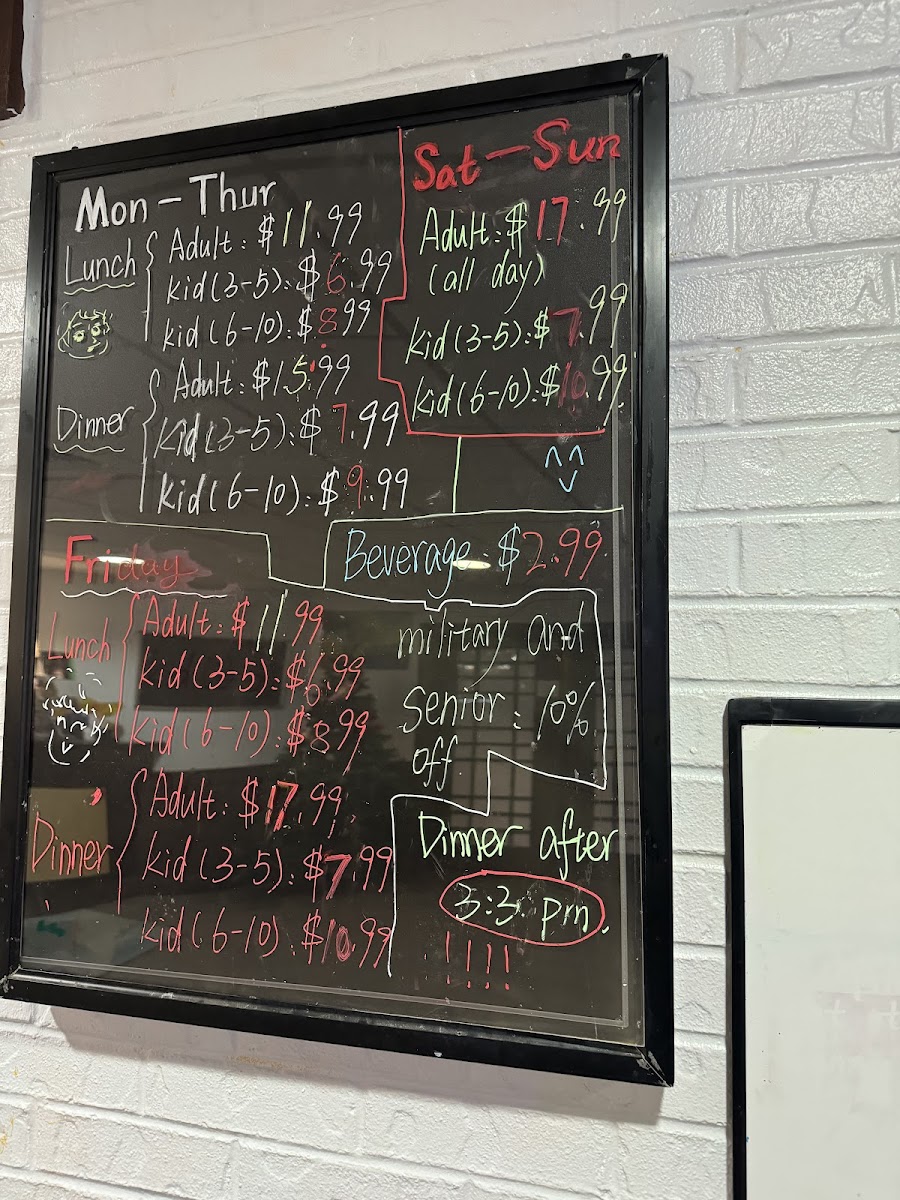 Mon - Thur
Lunch
Adult: $11.99
kid (3-5): $6.99
kid (6-10): $8.99
Dinner
Adult: $15.99
kid (3-5): $7.99
kid (6-10): $9.99
Sat - Sun
Adult: $17.99
(all day)
kid (3-5): $7.99
kid (6-10): $10.99
Friday
Lunch
Adult: $11.99
kid (3-5): $6.99
kid (6-10): $8.99
Dinner
Adult: $17.99
kid (3-5): $7.99
kid (6-10): $10.99
Beverage: $2.99
military and
Senior: 10%
off
Dinner after
3:3 pm
!!!!